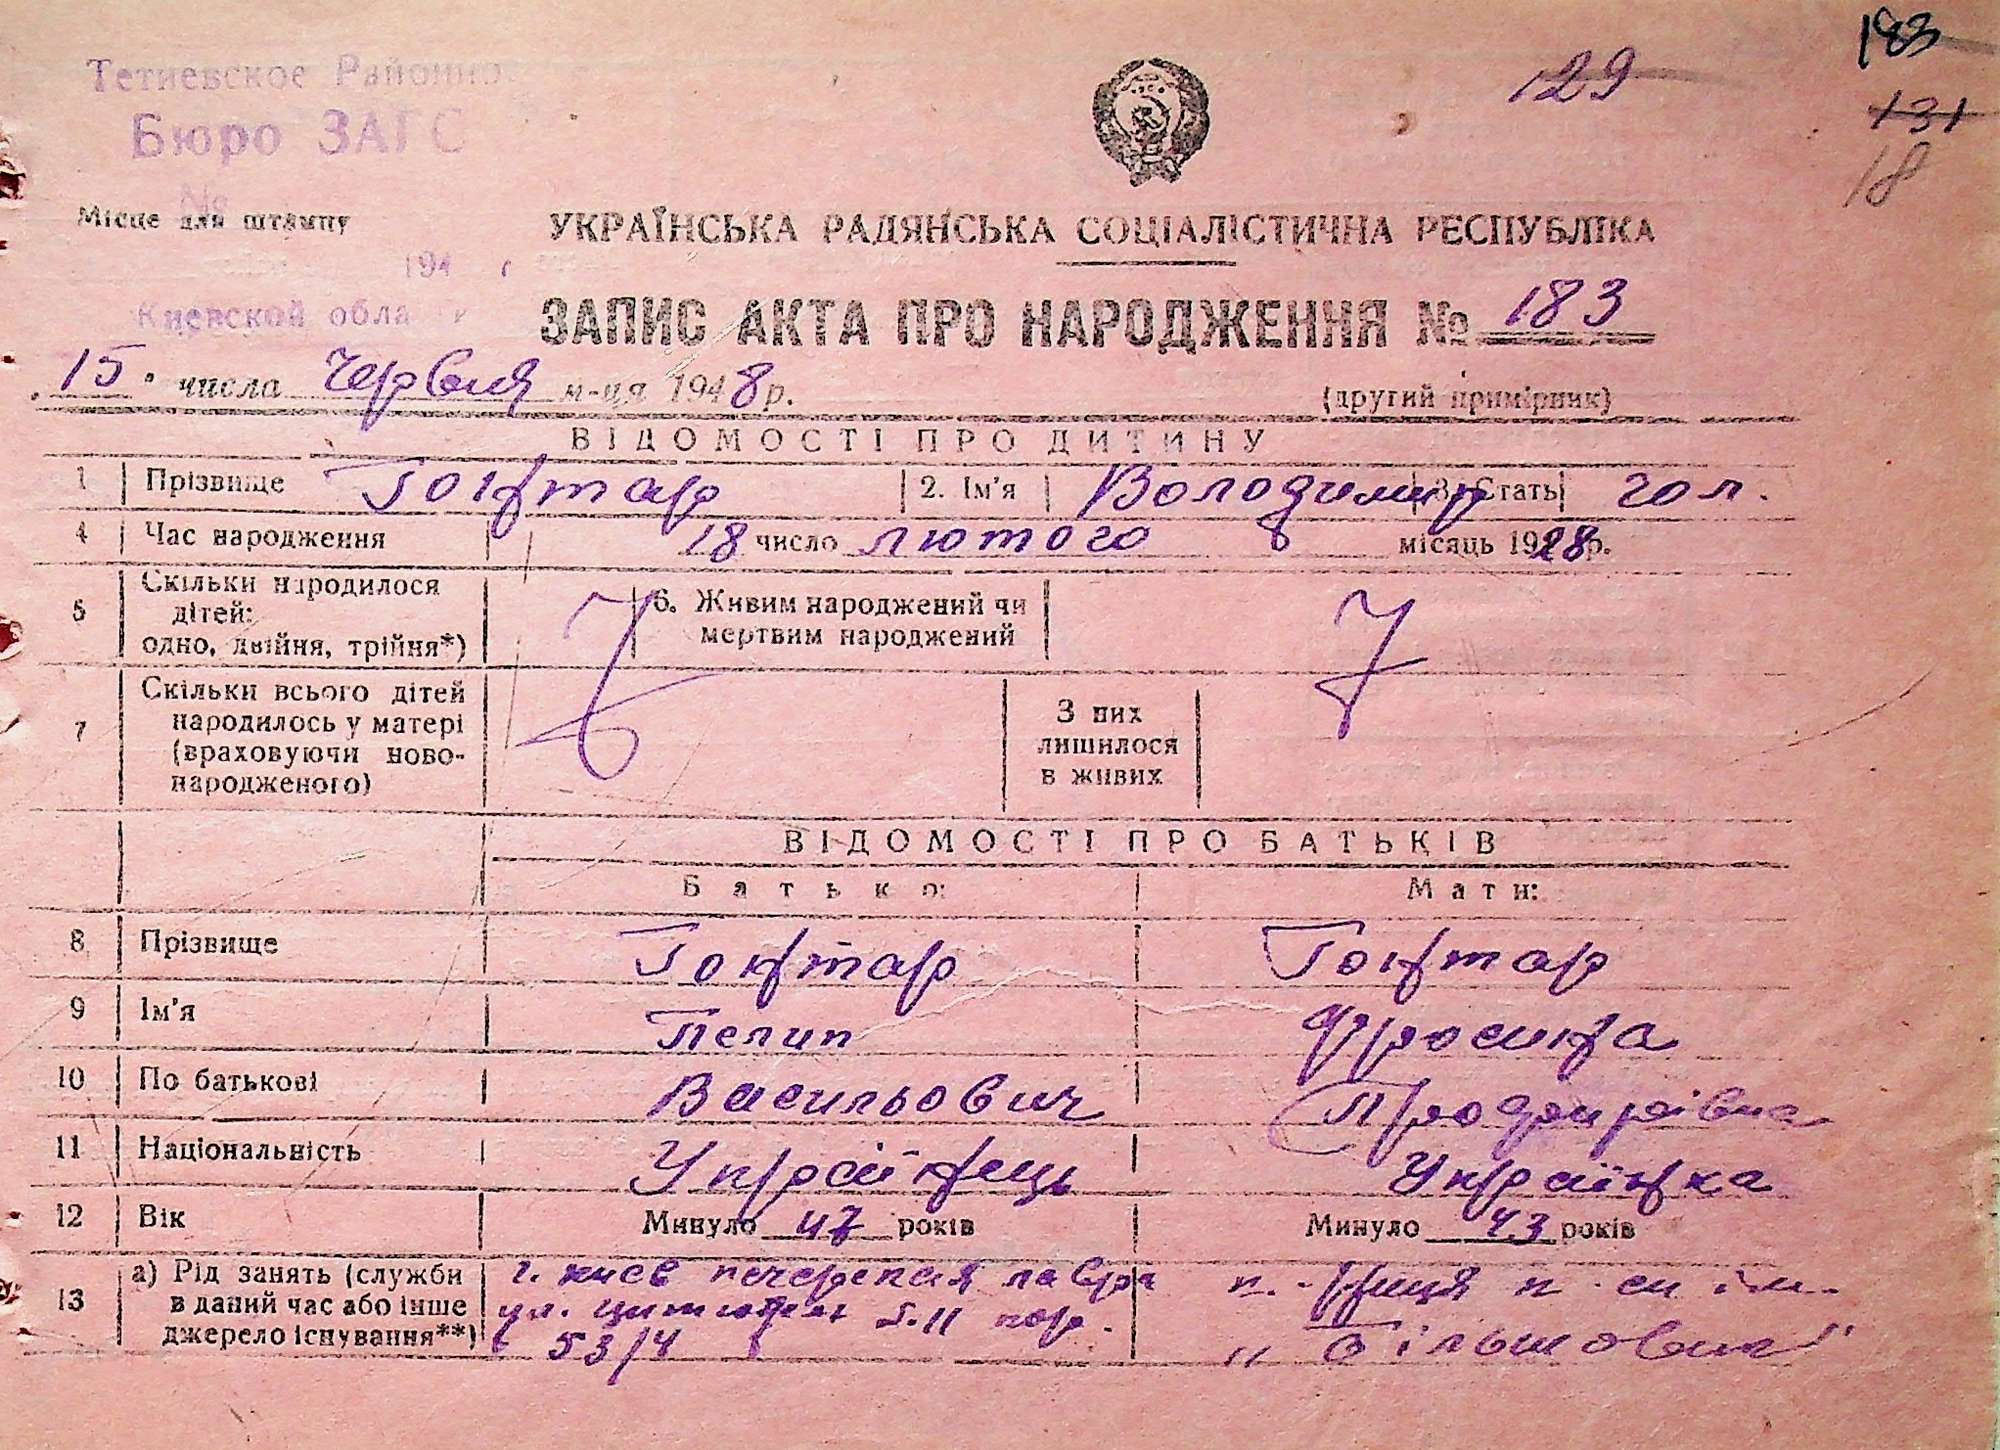 183
129
131
18
Тетиевское Районно
Бюро ЗАГС
№
Місце для штампу
194 г.
Киевской области
УКРАЇНСЬКА РАДЯНСЬКА СОЦІАЛІСТИЧНА РЕСПУБЛІКА
ЗАПИС АКТА ПРО НАРОДЖЕННЯ № 183
15 числа Червня м-ця 1948 р.
(другий примірник)
ВІДОМОСТІ ПРО ДИТИНУ
1 Прізвище Гонтар 2. Ім'я Володимир 3. Стать чол.
4 Час народження 18 число лютого місяць 1928 р.
5 Скільки народилося дітей: одно, двійня, трійня*) 6. Живим народжений чи мертвим народжений
7 Скільки всього дітей народилось у матері (враховуючи новонародженого) З них лишилося в живих
ВІДОМОСТІ ПРО БАТЬКІВ
Батько: Мати:
8 Прізвище Гонтар Гонтар
9 Ім'я Пелип Фросина
10 По батькові Васильович
11 Національність Українець Українка
12 Вік Минуло 47 років Минуло 43 років
13 а) Рід занять (служби в даний час або інше джерело існування**)
г. Киев печерская лавра
ул. п. 11 кор.
53/4
"Більшовик"